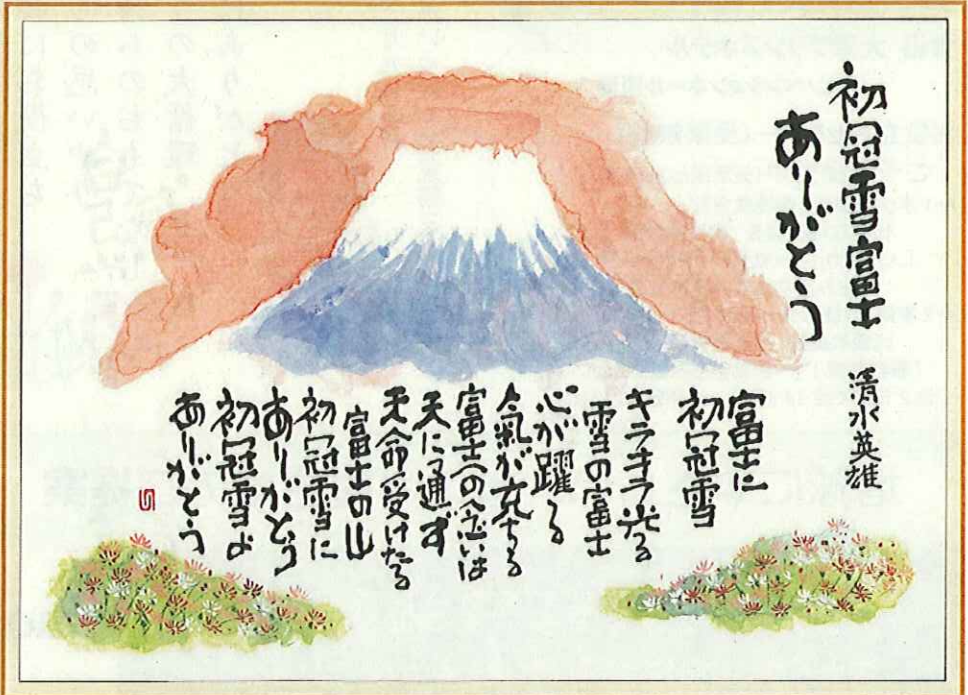 初冠雪富士
ありがとう
清水英雄
富士に
初冠雪
キラキラ光る
雪の富士
心が躍る
氣が充ちる
富士への念いは
天に通ず
天命受けたる
富士の山
初冠雪に
ありがとう
初冠雪よ
ありがとう